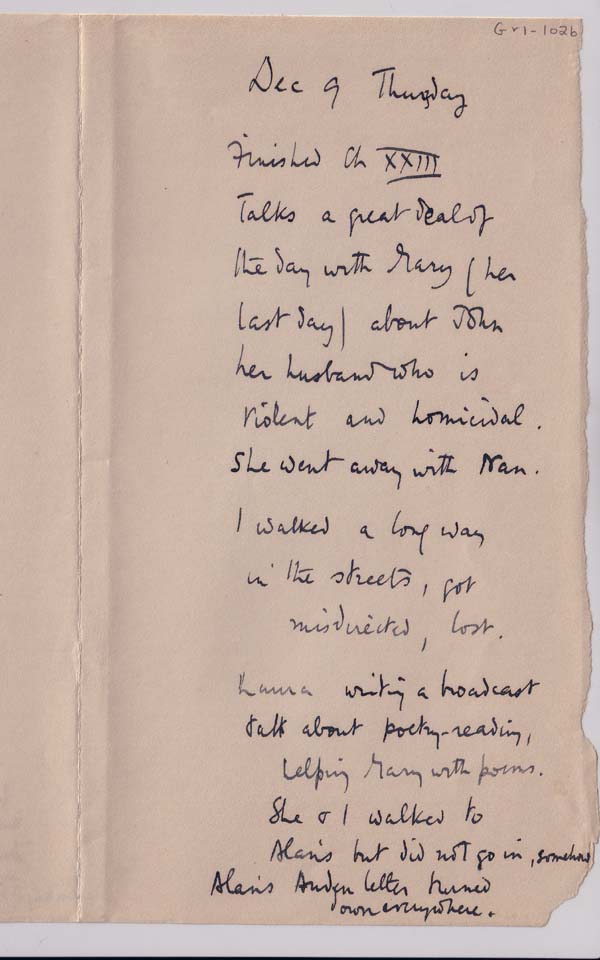 Gr1-102b
Dec 9 Thursday
Finished Ch XXIII
Talks a great deal of
the day with Mary (her
last day) about John
her husband who is
violent and homicidal.
She went away with Nan.
I walked a long way
in the streets, got
misdirected, lost.
Laura writing a broadcast
talk about poetry-reading,
helping Mary with poems.
She & I walked to
Alan's but did not go in, somehow
Alan's Auden letter turned
down everywhere.